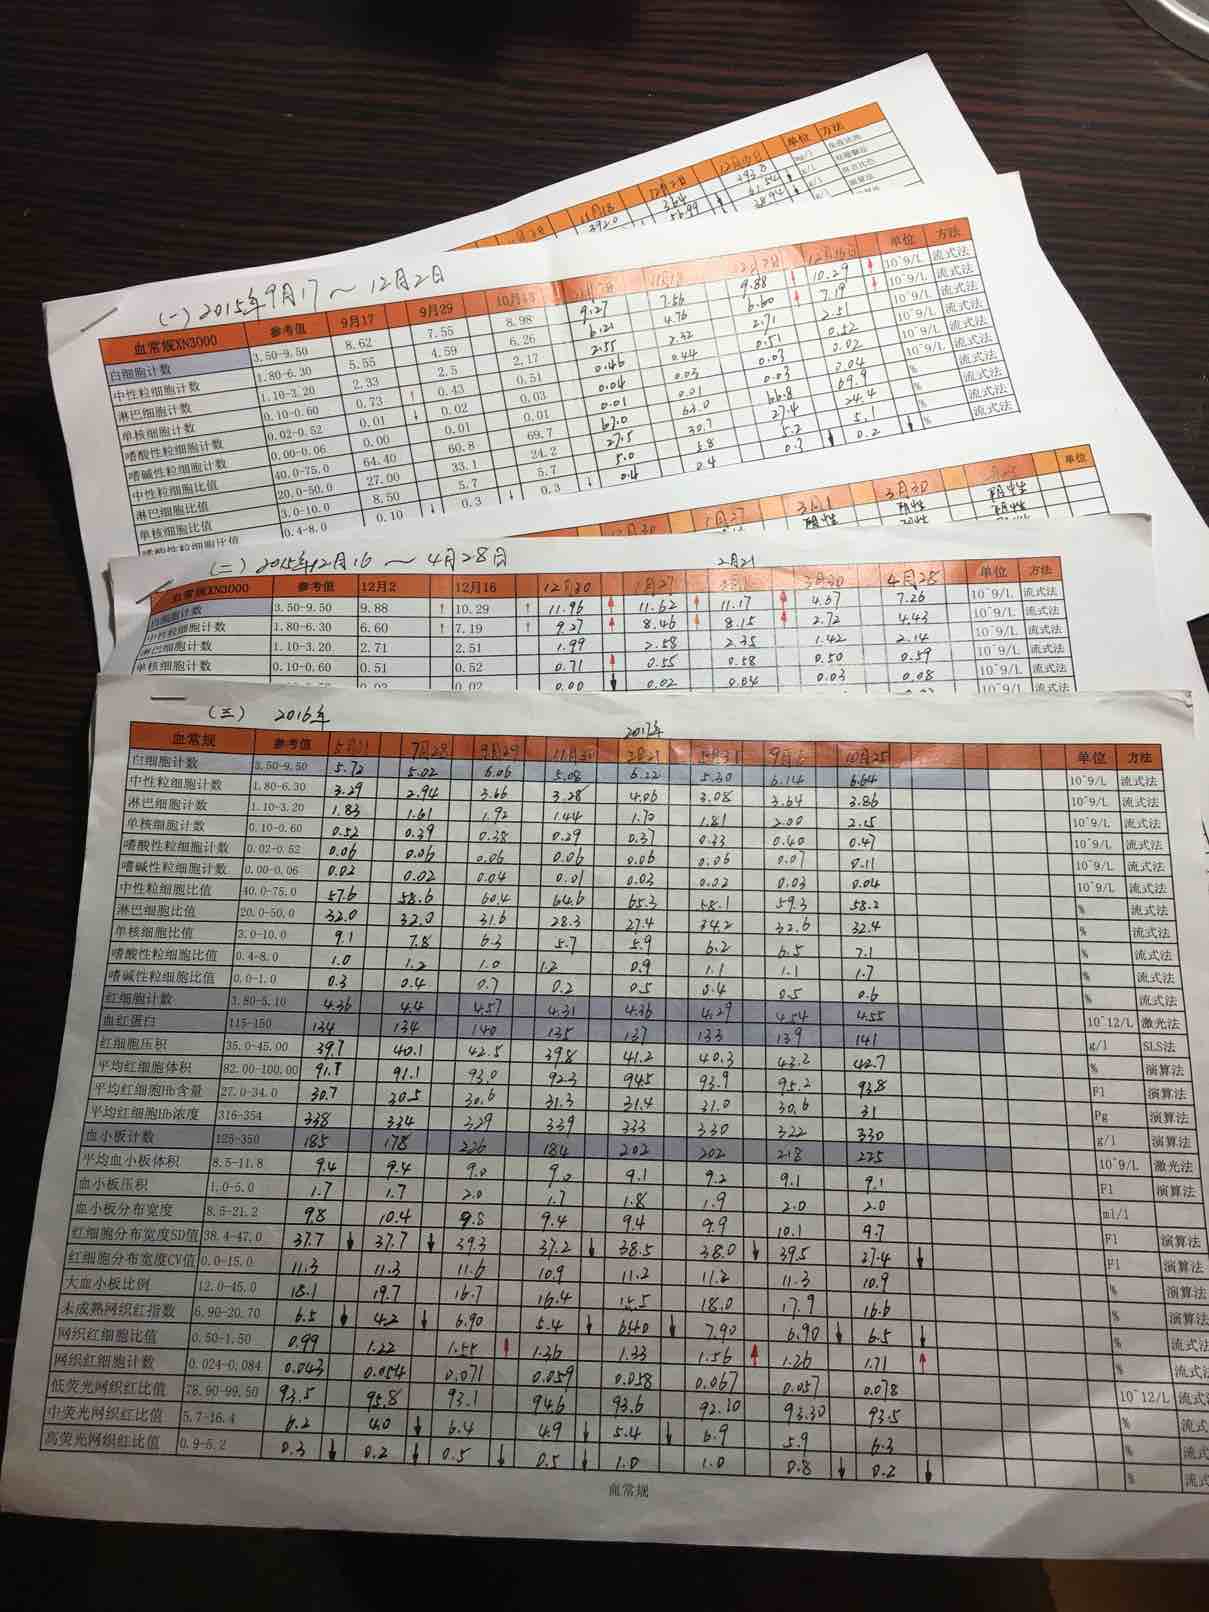 11月18 12月2日 12月16日 单位 方法
392.0 364 393.8
(一) 2015年9月17～12月2日
血常规XN3000 参考值 9月17 9月29 10月13 11月18 12月2日 12月16日 单位 方法
白细胞计数 3.50-9.50 8.62 7.55 8.98 9.27 7.66 9.88 ↑ 10.29 ↑ 10^9/L 流式法
中性粒细胞计数 1.80-6.30 5.55 4.59 6.26 6.21 4.76 6.60 ↑ 7.19 ↑ 10^9/L 流式法
淋巴细胞计数 1.10-3.20 2.33 2.5 2.17 2.55 2.32 2.71 2.51 10^9/L 流式法
单核细胞计数 0.10-0.60 0.73 ↑ 0.43 0.51 0.46 0.44 0.51 0.52 10^9/L 流式法
嗜酸性粒细胞计数 0.02-0.52 0.01 ↓ 0.02 0.03 0.04 0.03 0.03 0.02 10^9/L 流式法
嗜碱性粒细胞计数 0.00-0.06 0.00 0.01 0.01 0.01 0.01 0.03 0.04
中性粒细胞比值 40.0-75.0 64.40 60.8 69.7 67.0 63.0 66.8 69.9 % 流式法
淋巴细胞比值 20.0-50.0 27.00 33.1 24.2 27.5 30.7 27.4 24.4 % 流式法
单核细胞比值 3.0-10.0 8.50 5.7 5.7 5.0 5.8 5.2 5.1 % 流式法
嗜酸性粒细胞比值 0.4-8.0 0.10 ↓ 0.3 ↓ 0.3 ↓ 0.4 0.4 0.3 ↓ 0.2 ↓ % 流式法
12月30 1月27 3月1 3月30 单位
阴性 阴性
(二) 2015年12月16～4月28日 2月21
血常规XN3000 参考值 12月2 12月16 12月30 1月27 3月1 3月30 4月28 单位 方法
白细胞计数 3.50-9.50 9.88 ↑ 10.29 ↑ 11.96 ↑ 11.62 ↑ 11.17 ↑ 4.67 7.26 10^9/L 流式法
中性粒细胞计数 1.80-6.30 6.60 ↑ 7.19 ↑ 9.27 ↑ 8.46 ↑ 8.15 ↑ 2.72 4.43 10^9/L 流式法
淋巴细胞计数 1.10-3.20 2.71 2.51 1.99 2.58 2.35 1.42 2.14 10^9/L 流式法
单核细胞计数 0.10-0.60 0.51 0.52 0.71 ↑ 0.55 0.58 0.50 0.59 10^9/L 流式法
0.02 0.00 ↓ 0.02 0.04 0.03 0.08 10^9/L 流式法
(三) 2016年 2017年
血常规 参考值 5月31 7月28 9月29 11月30 2月21 5月31 9月5 10月25 单位 方法
白细胞计数 3.50-9.50 5.72 5.02 6.06 5.08 6.22 5.30 6.14 6.64 10^9/L 流式法
中性粒细胞计数 1.80-6.30 3.29 2.94 3.66 3.28 4.06 3.08 3.64 3.86 10^9/L 流式法
淋巴细胞计数 1.10-3.20 1.83 1.61 1.92 1.44 1.70 1.81 2.00 2.15 10^9/L 流式法
单核细胞计数 0.10-0.60 0.52 0.39 0.38 0.29 0.37 0.33 0.40 0.47 10^9/L 流式法
嗜酸性粒细胞计数 0.02-0.52 0.06 0.06 0.06 0.06 0.06 0.06 0.07 0.11 10^9/L 流式法
嗜碱性粒细胞计数 0.00-0.06 0.02 0.02 0.04 0.01 0.03 0.02 0.03 0.04 10^9/L 流式法
中性粒细胞比值 40.0-75.0 57.6 58.6 60.4 64.6 65.3 58.1 59.3 58.2 % 流式法
淋巴细胞比值 20.0-50.0 32.0 32.0 31.6 28.3 27.4 34.2 32.6 32.4 % 流式法
单核细胞比值 3.0-10.0 9.1 7.8 6.3 5.7 5.9 6.2 6.5 7.1 % 流式法
嗜酸性粒细胞比值 0.4-8.0 1.0 1.2 1.0 1.2 0.9 1.1 1.1 1.7 % 流式法
嗜碱性粒细胞比值 0.0-1.0 0.3 0.4 0.7 0.2 0.5 0.4 0.5 0.6 % 流式法
红细胞计数 3.80-5.10 4.36 4.4 4.57 4.31 4.36 4.29 4.54 4.55 10^12/L 激光法
血红蛋白 115-150 134 134 140 135 137 133 139 141 g/l SLS法
红细胞压积 35.0-45.00 39.7 40.1 42.5 39.8 41.2 40.3 43.2 42.7 % 演算法
平均红细胞体积 82.00-100.00 91.1 91.1 93.0 92.3 94.5 93.9 95.2 93.8 Fl 演算法
平均红细胞Hb含量 27.0-34.0 30.7 30.5 30.6 31.3 31.4 31.0 30.6 31 Pg 演算法
平均红细胞Hb浓度 316-354 338 334 329 339 333 330 322 330 g/l 演算法
血小板计数 125-350 185 178 226 184 202 202 218 225 10^9/L 激光法
平均血小板体积 8.5-11.8 9.4 9.4 9.0 9.0 9.1 9.2 9.1 9.1 Fl 演算法
血小板压积 1.0-5.0 1.7 1.7 2.0 1.7 1.8 1.9 2.0 2.0 ml/l
血小板分布宽度 8.5-21.2 9.8 10.4 9.8 9.4 9.4 9.9 10.1 9.7 Fl 演算法
红细胞分布宽度SD值 38.4-47.0 37.7 ↓ 37.7 ↓ 39.3 37.2 ↓ 38.5 38.0 ↓ 39.5 27.4 ↓ Fl 演算法
红细胞分布宽度CV值 0.0-15.0 11.3 11.3 11.6 10.9 11.2 11.2 11.3 10.9 % 演算法
大血小板比例 12.0-45.0 18.1 19.7 16.7 16.4 16.5 18.0 17.9 16.6 % 演算法
未成熟网织红指数 6.90-20.70 6.5 ↓ 4.2 ↓ 6.90 5.4 ↓ 6.40 ↓ 7.90 6.90 ↓ 6.5 ↓ % 流式法
网织红细胞比值 0.50-1.50 0.99 1.22 1.55 ↑ 1.36 1.33 1.56 ↑ 1.26 1.71 ↑ % 流式法
网织红细胞计数 0.024-0.084 0.043 0.054 0.071 0.059 0.058 0.067 0.057 0.078 10^12/L 流式法
低荧光网织红比值 78.90-99.50 93.5 95.8 93.1 94.6 93.6 92.10 93.30 93.5 % 流式
中荧光网织红比值 5.7-16.4 6.2 4.0 ↓ 6.4 4.9 ↓ 5.4 ↓ 6.9 5.9 6.3 % 流式
高荧光网织红比值 0.9-5.2 0.3 ↓ 0.2 ↓ 0.5 ↓ 0.5 ↓ 1.0 1.0 0.8 ↓ 0.2 ↓ % 流式
血常规